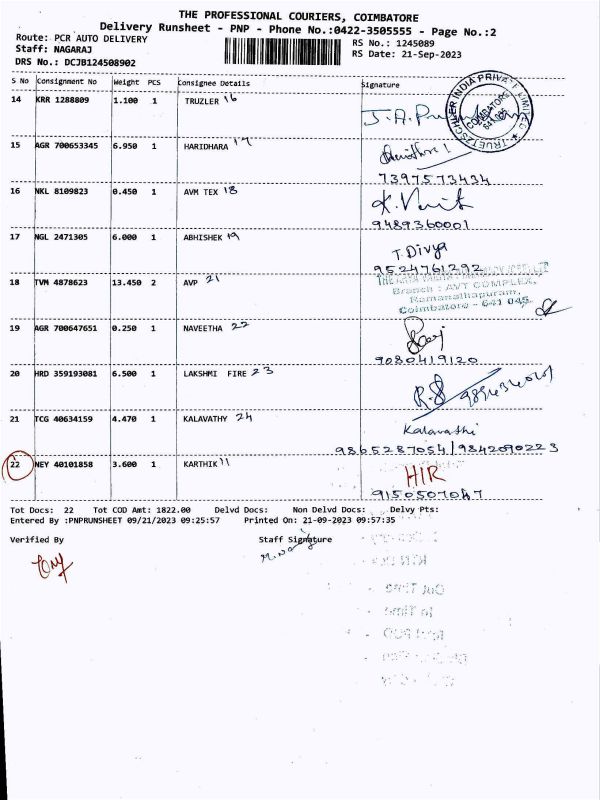 THE PROFESSIONAL COURIERS, COIMBATORE
Delivery Runsheet - PNP - Phone No.:0422-3505555 - Page No.:2
Route: PCR AUTO DELIVERY
RS No.: 1245089
Staff: NAGARAJ
RS Date: 21-Sep-2023
DRS No.: DCJB124508902
S No Consignment No Weight PCS Consignee Details Signature
14 KRR 1288809 1.100 1 TRUZLER 16
15 AGR 700653345 6.950 1 HARIDHARA 17
7397573434
16 NKL 8109823 0.450 1 AVM TEX 18
9489360001
17 NGL 2471305 6.000 1 ABHISHEK 19 T. Divya
9524761292
18 TVM 4878623 13.450 2 AVP 21
Branch : AVT COMPLEX,
Ramanathapuram,
Coimbatore - 641 045.
19 AGR 700647651 0.250 1 NAVEETHA 22
9080419120
20 HRD 359193081 6.500 1 LAKSHMI FIRE 23 R.S
21 TCG 40634159 4.470 1 KALAVATHY 24 Kalavathi
9865287054/9842090223
22 NEY 40101858 3.600 1 KARTHIK 11 HIR
9150507047
Tot Docs: 22 Tot COD Amt: 1822.00 Delvd Docs: Non Delvd Docs: Delvy Pts:
Entered By :PNPRUNSHEET 09/21/2023 09:25:57 Printed On: 21-09-2023 09:57:35
Verified By Staff Signature